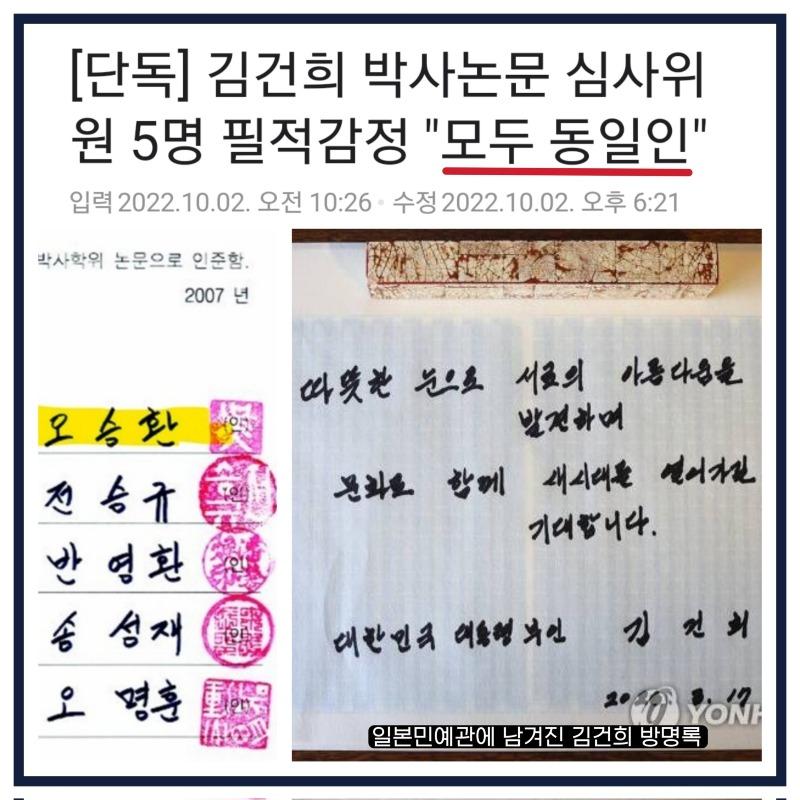 [단독] 김건희 박사논문 심사위
원 5명 필적감정 "모두 동일인"
입력 2022.10.02. 오전 10:26 • 수정 2022.10.02. 오후 6:21
박사학위 논문으로 인준함.
2007 년
오 승 환 (인)
전 승 규 (인)
반 영 환 (인)
송 성 재 (인)
오 명 훈 (인)
따뜻한 눈으로 서로의 아름다움을
발견하며
문화로 함께 새시대를 열어가길
기대합니다.
대한민국 대통령 부인 김 건 희
3. 17
YONH
일본민예관에 남겨진 김건희 방명록